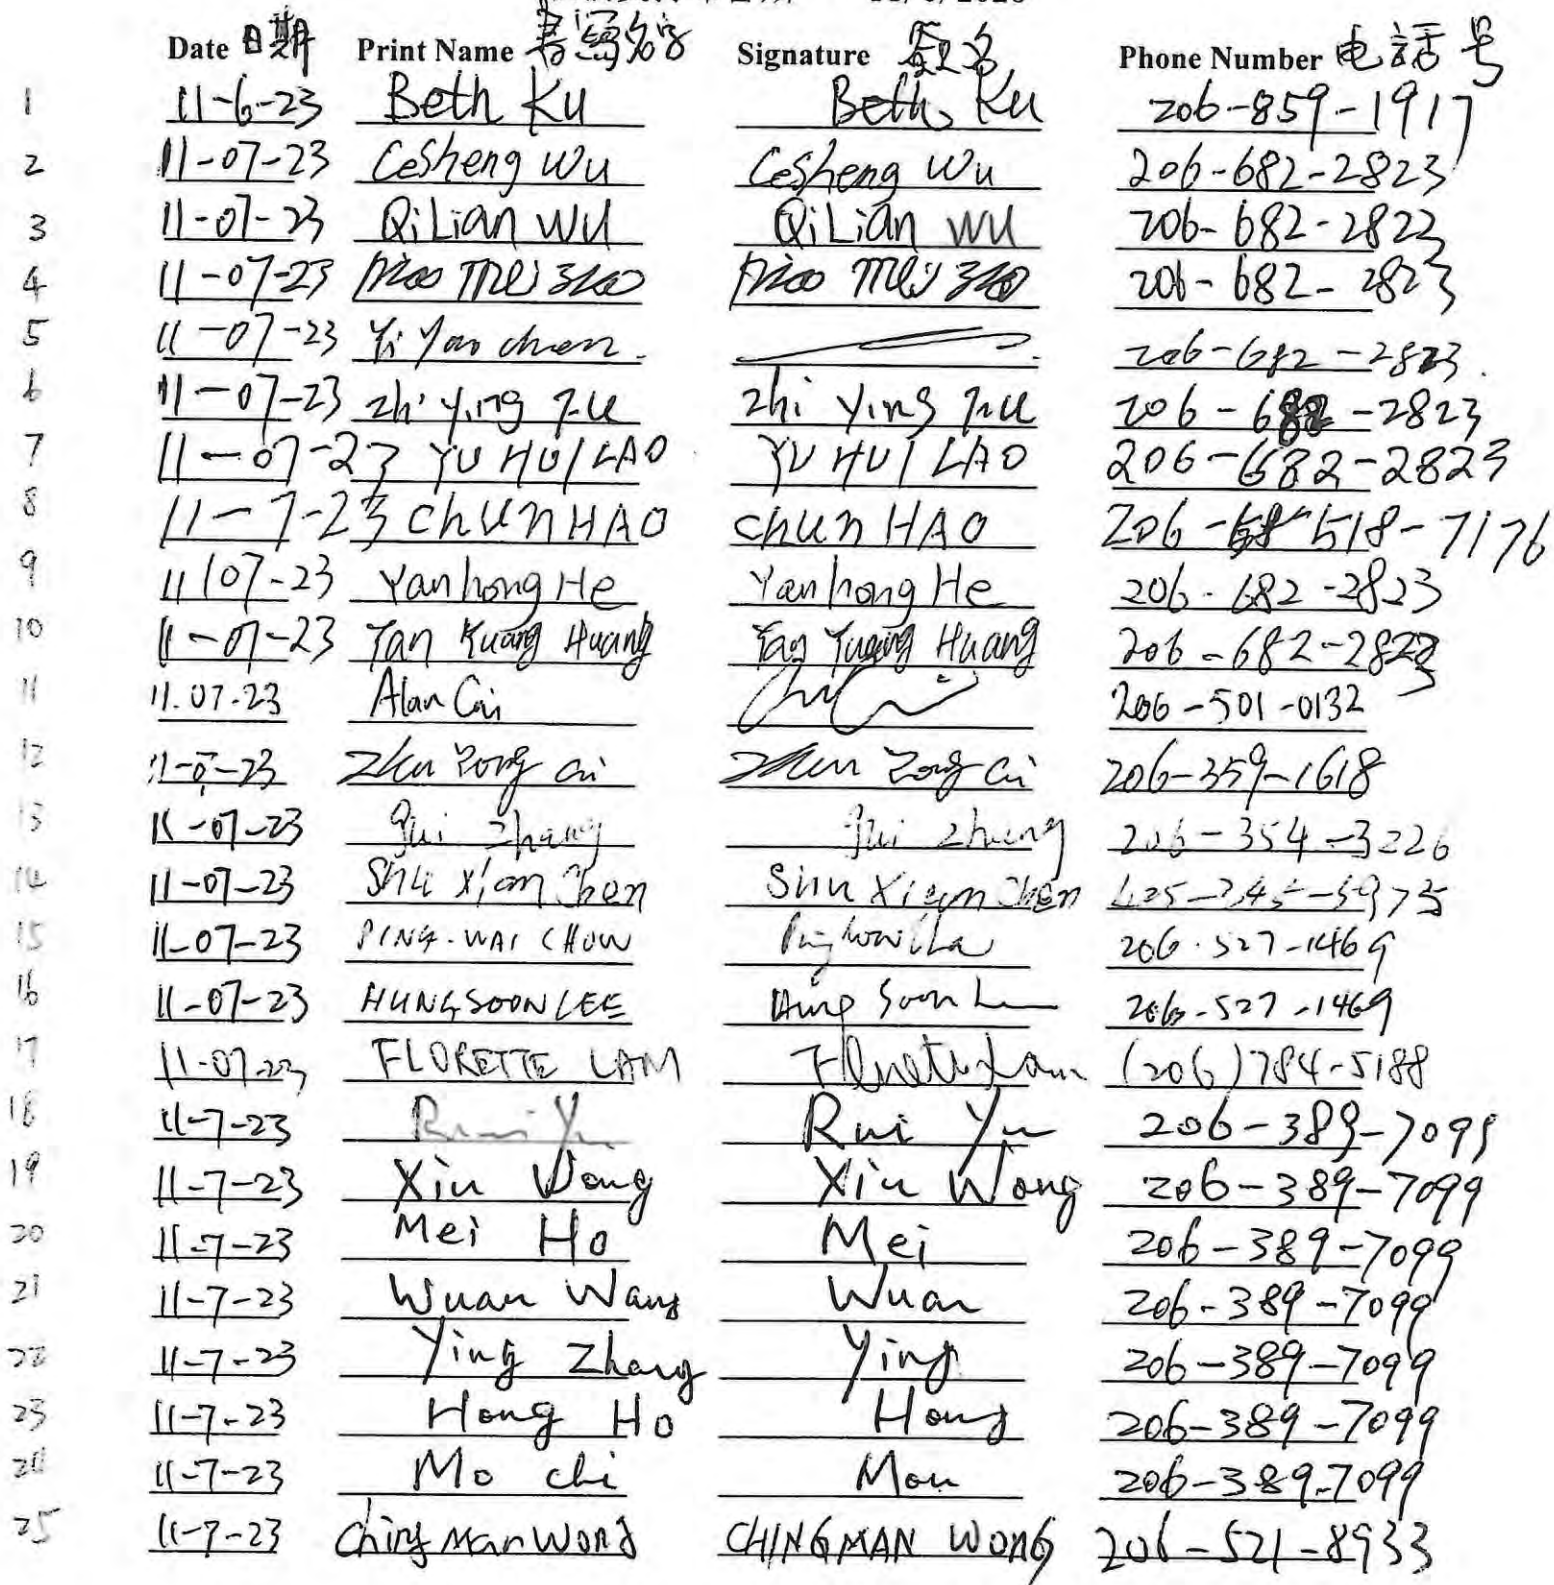 Date 日期 Print Name 書寫名字 Signature 簽名 Phone Number 电話号
1 11-6-23 Beth Ku Beth Ku 206-859-1917
2 11-07-23 Cesheng Wu Cesheng Wu 206-682-2823
3 11-07-23 QiLian WU QiLian WU 206-682-2823
4 11-07-23 206-682-2823
5 11-07-23 Yi Yao chen. 206-682-2823.
6 11-07-23 zhi ying zhi Ying 206-682-2823
7 11-07-23 YU HUI LAO YU HUI LAO 206-682-2823
8 11-7-23 CHUN HAO CHUN HAO 206-518-7176
9 11/07-23 Yanhong He Yanhong He 206-682-2823
10 11-07-23 Yan Kuang Huang Yan Yuang Huang 206-682-2823
11 11.07.23 Alan Cai 206-501-0132
12 11-07-23 Zhen Zong Cai Zhen Zong Cai 206-359-1618
13 11-07-23 Gui Zhang Gui Zhang 206-354-3226
14 11-07-23 Shu Xian Chen Shu Xian Chen 425-245-5975
15 11-07-23 PING-WAI CHOW 206-527-1469
16 11-07-23 HUNG SOON LEE Hung Soon 206-527-1469
17 11-07-23 FLORETTE LAM Florette Lam (206)784-5188
18 11-7-23 Rui Yu Rui Yu 206-389-7099
19 11-7-23 Xin Wong Xin Wong 206-389-7099
20 11-7-23 Mei Ho Mei 206-389-7099
21 11-7-23 Wuan Wang Wuan 206-389-7099
22 11-7-23 Ying Zhang Ying 206-389-7099
23 11-7-23 Hong Ho Hong 206-389-7099
24 11-7-23 Mo chi Mou 206-389-7099
25 11-7-23 Ching Man Wong CHING MAN WONG 206-521-8933